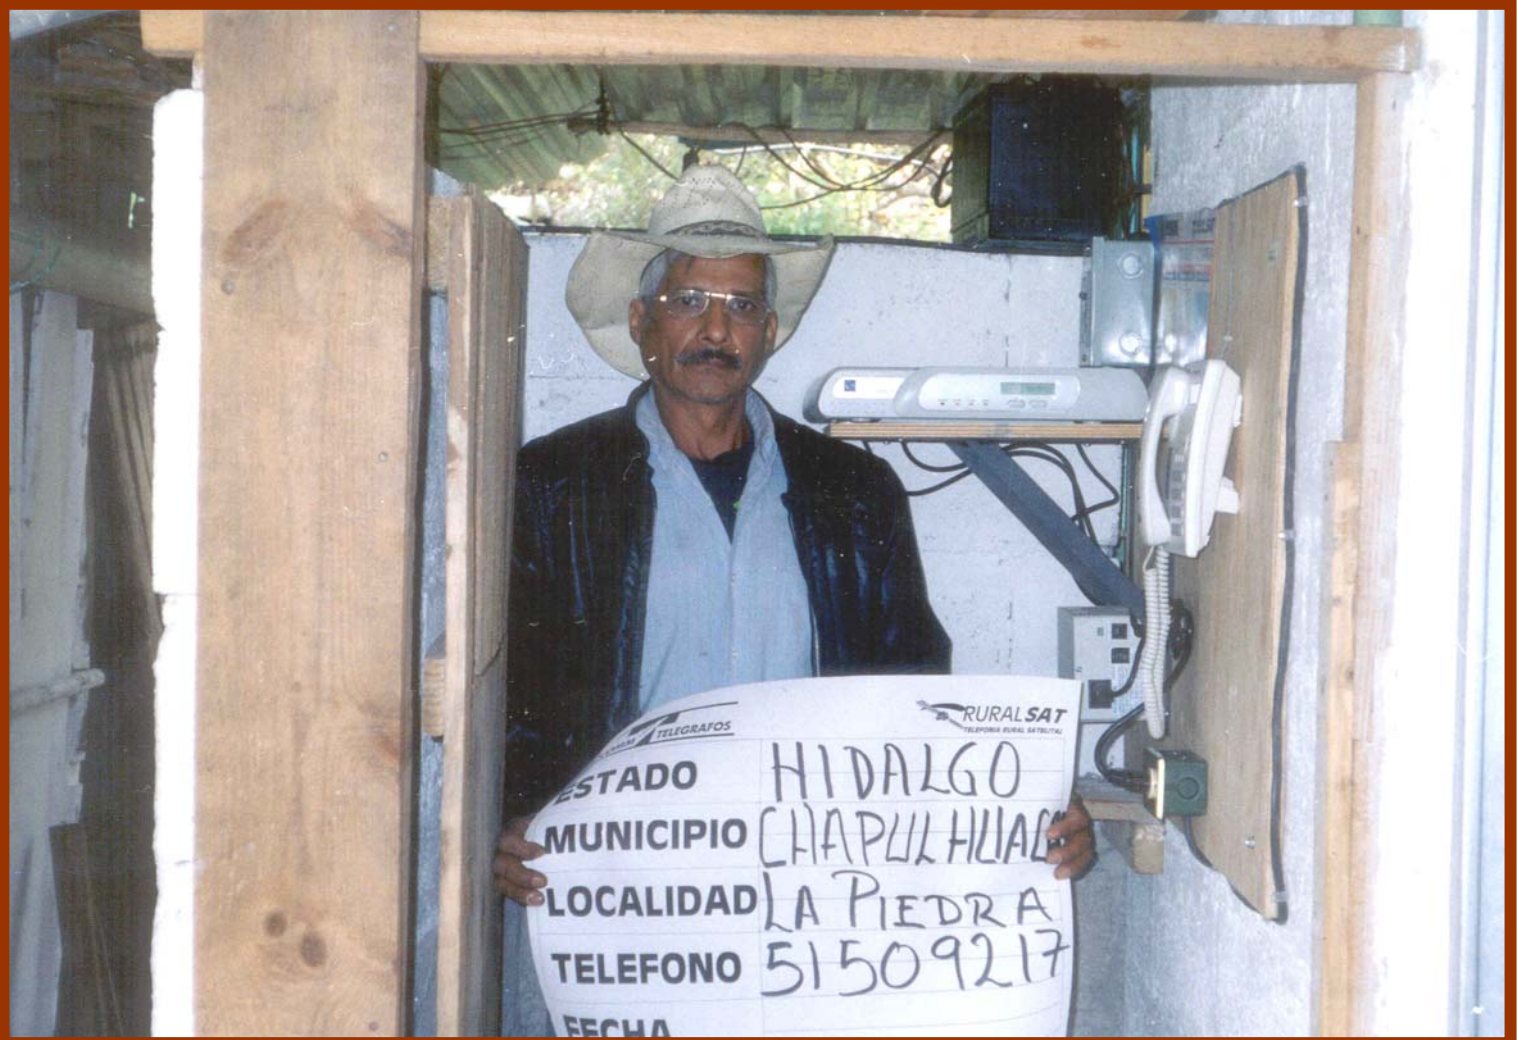 TELEGRAFOS
RURALSAT
TELEFONIA RURAL SATELITAL
ESTADO HIDALGO
MUNICIPIO CHAPULHUAC
LOCALIDAD LA PIEDRA
TELEFONO 51509217
FECHA